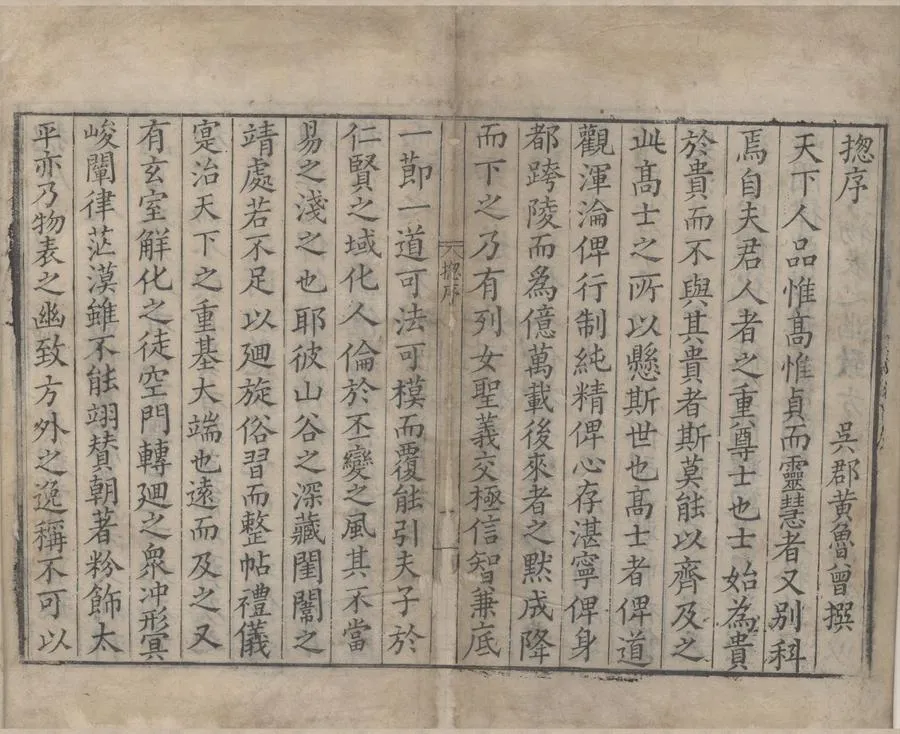 揔序
吳郡黄魯曾撰
天下人品惟髙惟貞而靈慧者又别科
焉自夫君人者之重尊士也士始為貴
於貴而不與其貴者斯莫能以齊及之
此髙士之所以懸斯世也髙士者俾道
觀渾淪俾行制純精俾心存湛寧俾身
都跨陵而為億萬載後來者之默成降
而下之乃有列女聖義交極信智兼底
揔序
一
一節一道可法可模而覆能引夫子於
仁賢之域化人倫於丕變之風其不當
易之淺之也耶彼山谷之深藏閨閫之
靖處若不足以廻旋俗習而整帖禮儀
寔治天下之重基大端也遠而及之又
有玄室解化之徒空門轉廻之衆冲形冥
峻闡律茫漠雖不能翊賛朝著粉飾太
平亦乃物表之幽致方外之逸稱不可以